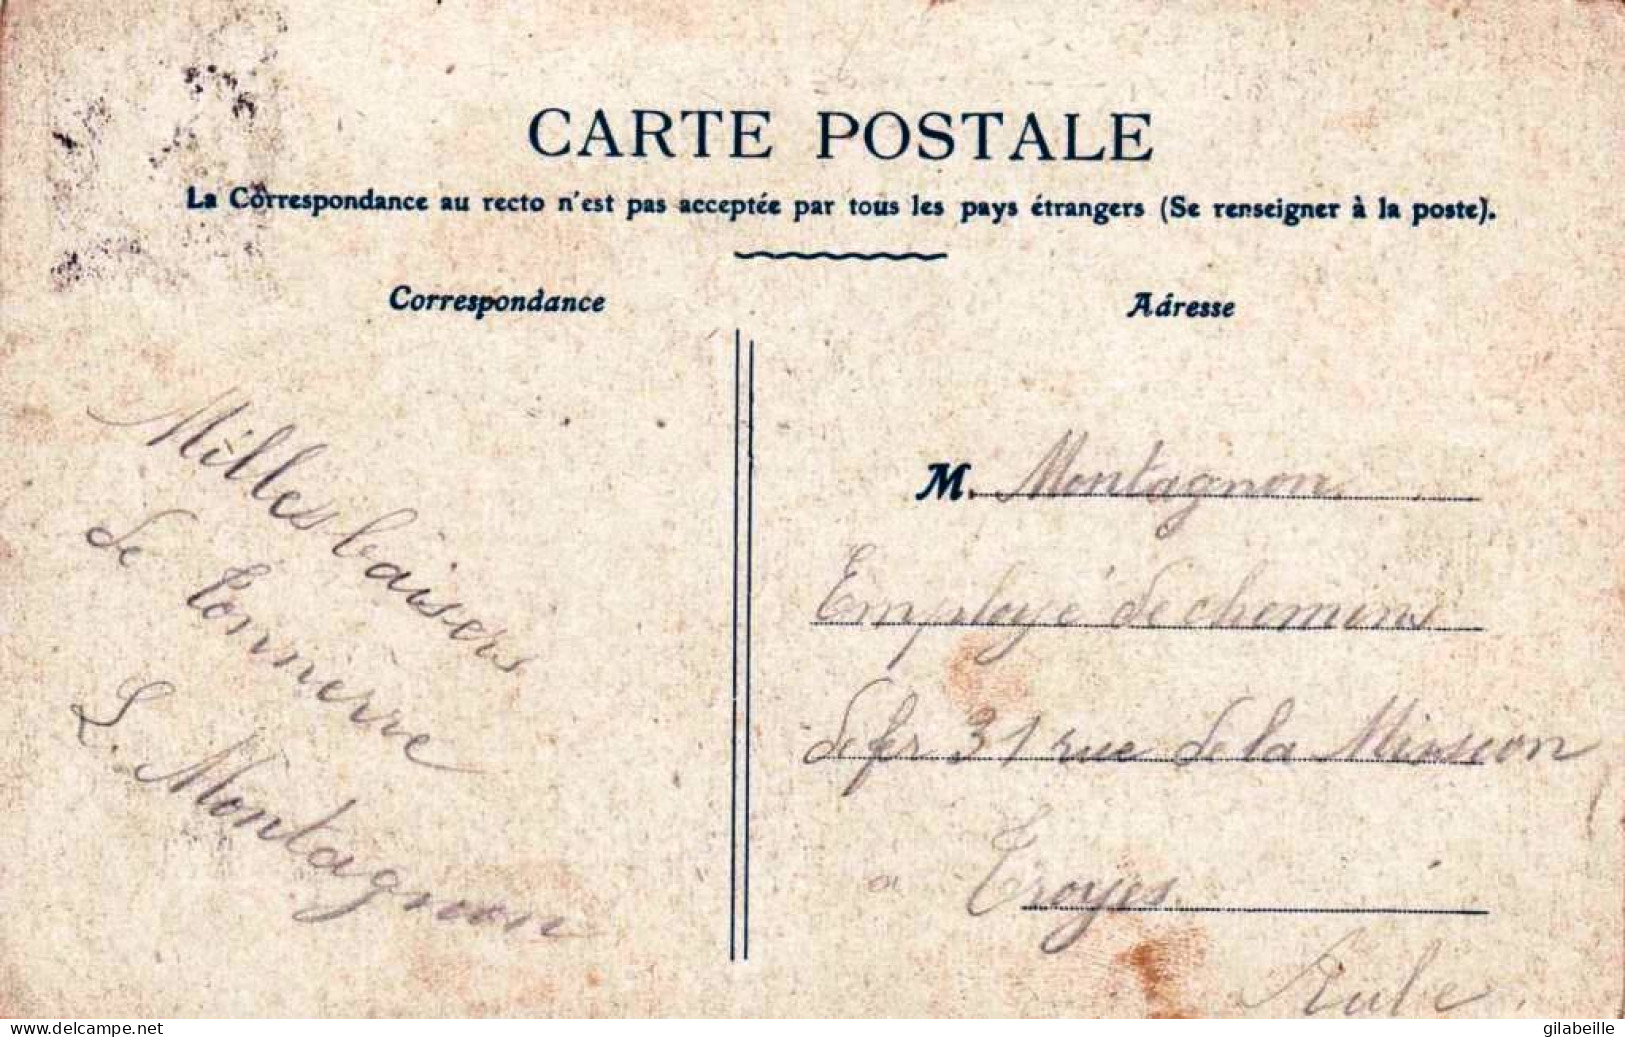 CARTE POSTALE
La Correspondance au recto n'est pas acceptée par tous les pays étrangers (Se renseigner à la poste).
Correspondance
Milles baisers
de Tonnerre
L. Montagnon
Adresse
M. Montagnon
Employé de chemins
de fer 31 rue de la Mission
a Troyes
Aube
www.delcampe.net
gilabeille